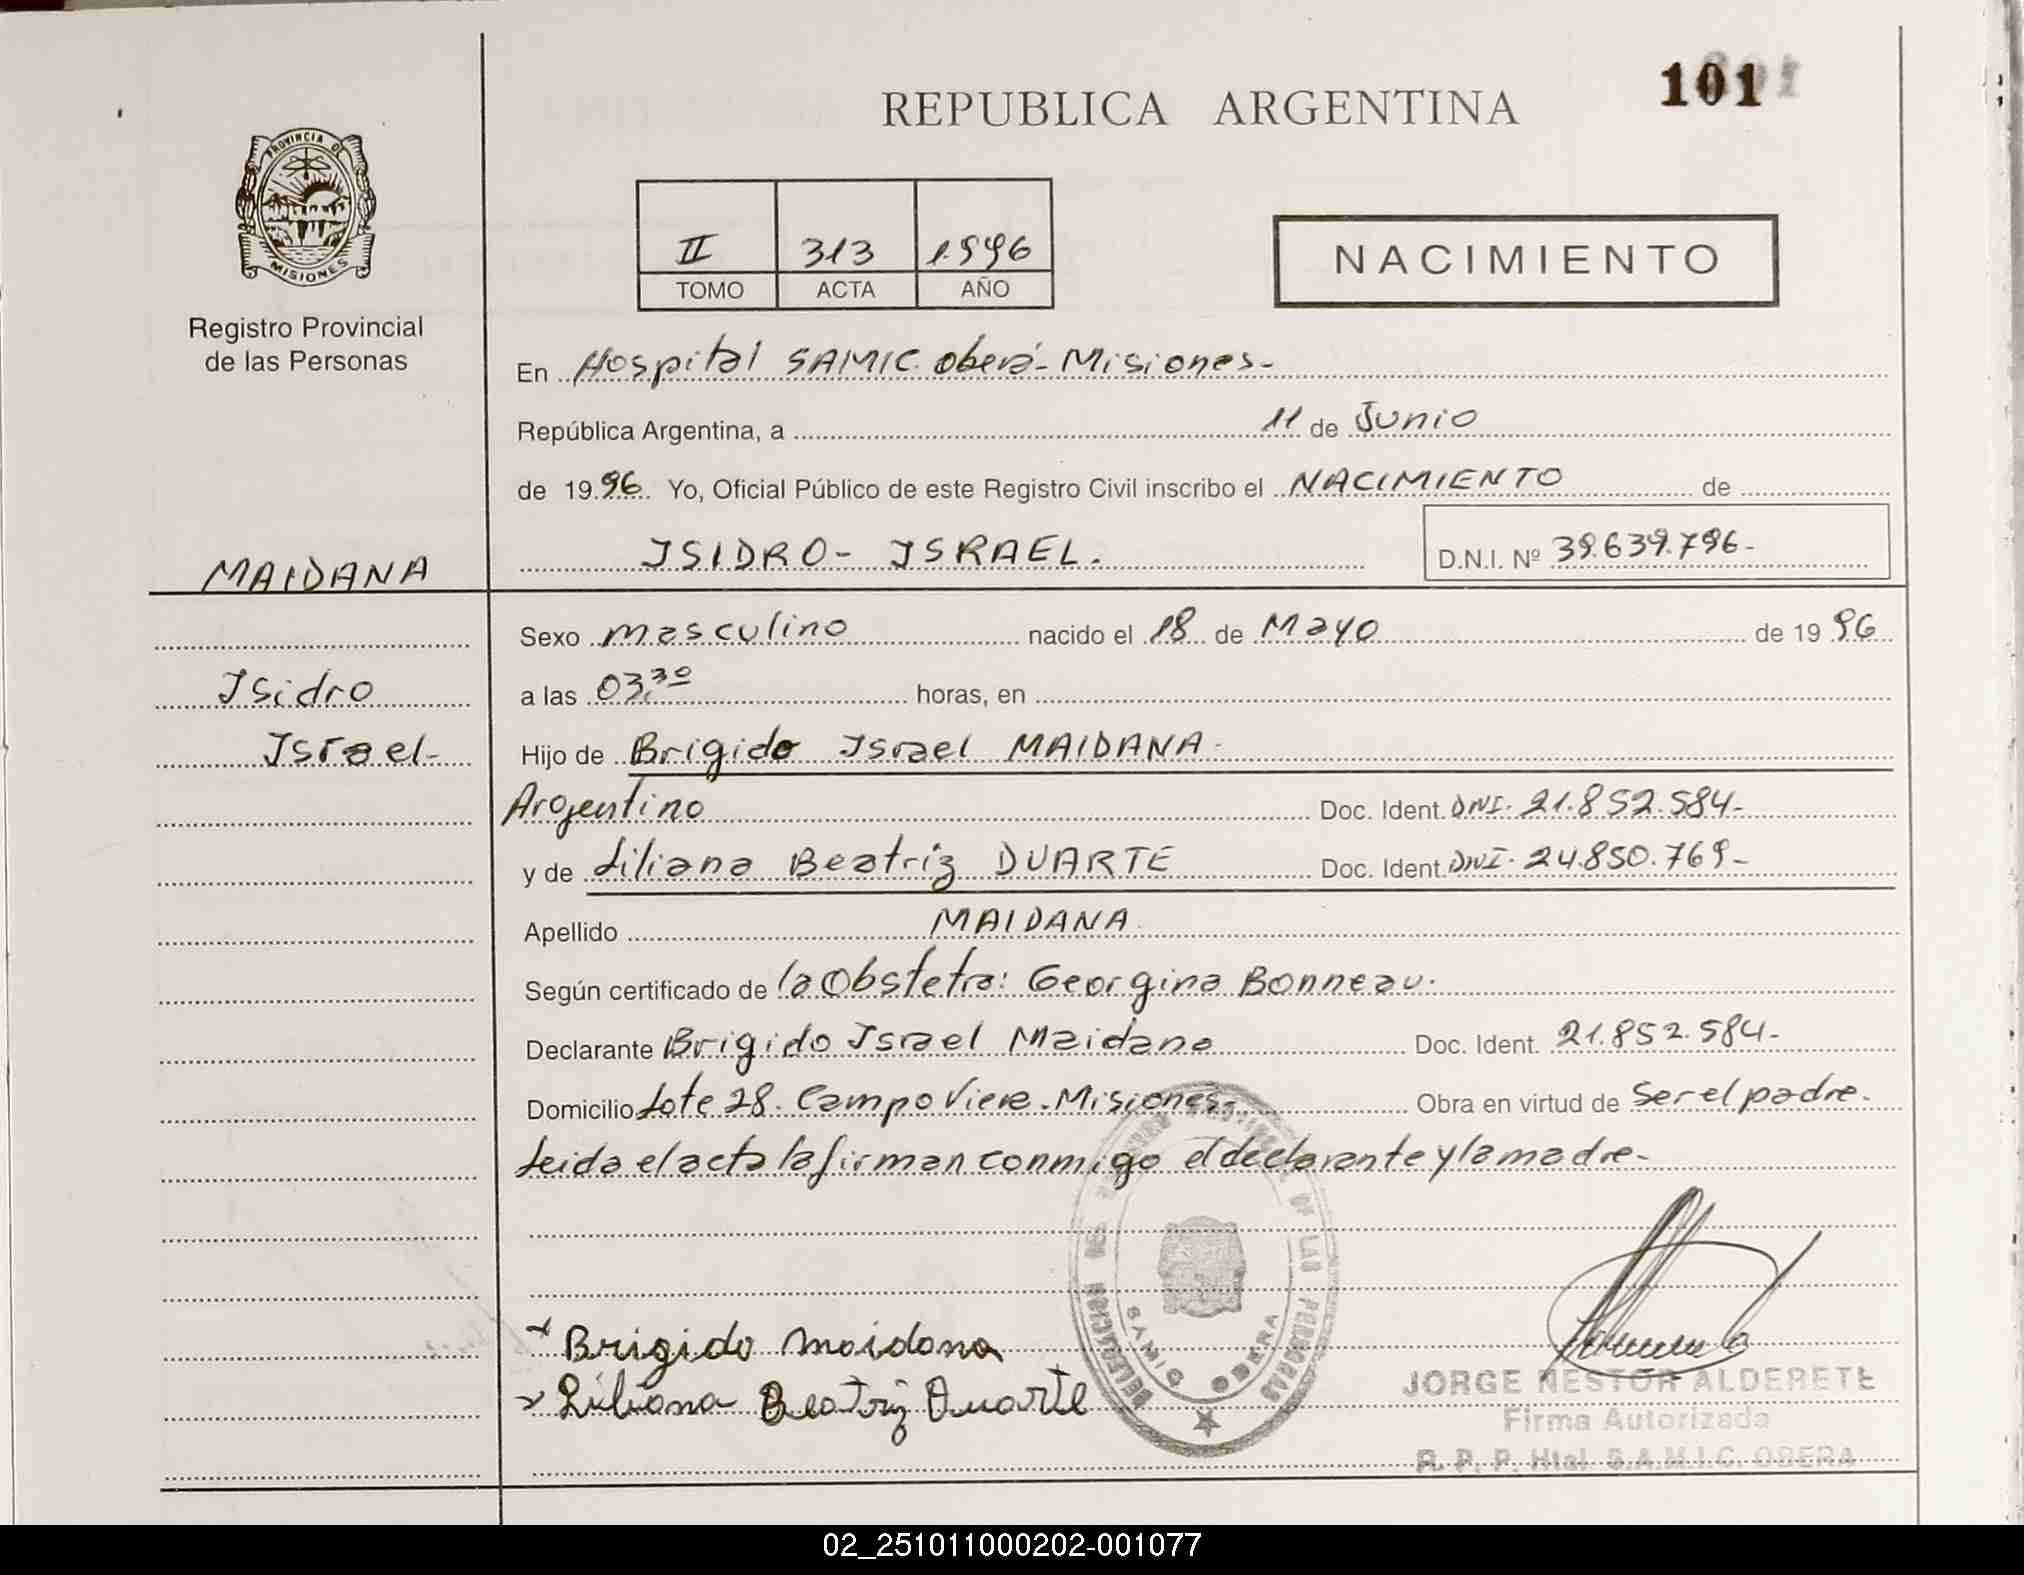 101
REPUBLICA ARGENTINA
PROVINCIA DE
MISIONES
Registro Provincial
de las Personas
II 313 1996
TOMO ACTA AÑO
NACIMIENTO
En Hospital SAMIC. oberá - Misiones -
República Argentina, a 11 de Junio
de 1996. Yo, Oficial Público de este Registro Civil inscribo el NACIMIENTO de
ISIDRO - ISRAEL.
D.N.I. Nº 39.639.796-
MAIDANA
Isidro
Israel-
Sexo masculino nacido el 18 de Mayo de 1996
a las 03,30 horas, en
Hijo de Brigido Israel MAIDANA-
Argentino Doc. Ident. DNI. 21.852.584-
y de Liliana Beatriz DUARTE Doc. Ident. DNI. 24.850.769-
Apellido MAIDANA
Según certificado de la Obstetra: Georgina Bonneau.
Declarante Brigido Israel Maidana Doc. Ident. 21.852.584-
Domicilio Lote 28. Campo Viera. Misiones- Obra en virtud de ser el padre.
Leida el acta la firman conmigo el declarante y la madre-
Brigido Maidana
Liliana Beatriz Duarte
DELEGACION DEL REGISTRO PROVINCIAL DE LAS PERSONAS
SAMIC OBERA
JORGE NESTOR ALDERETE
Firma Autorizada
R. P. P. Htal. S.A.M.I.C. OBERA
02_251011000202-001077